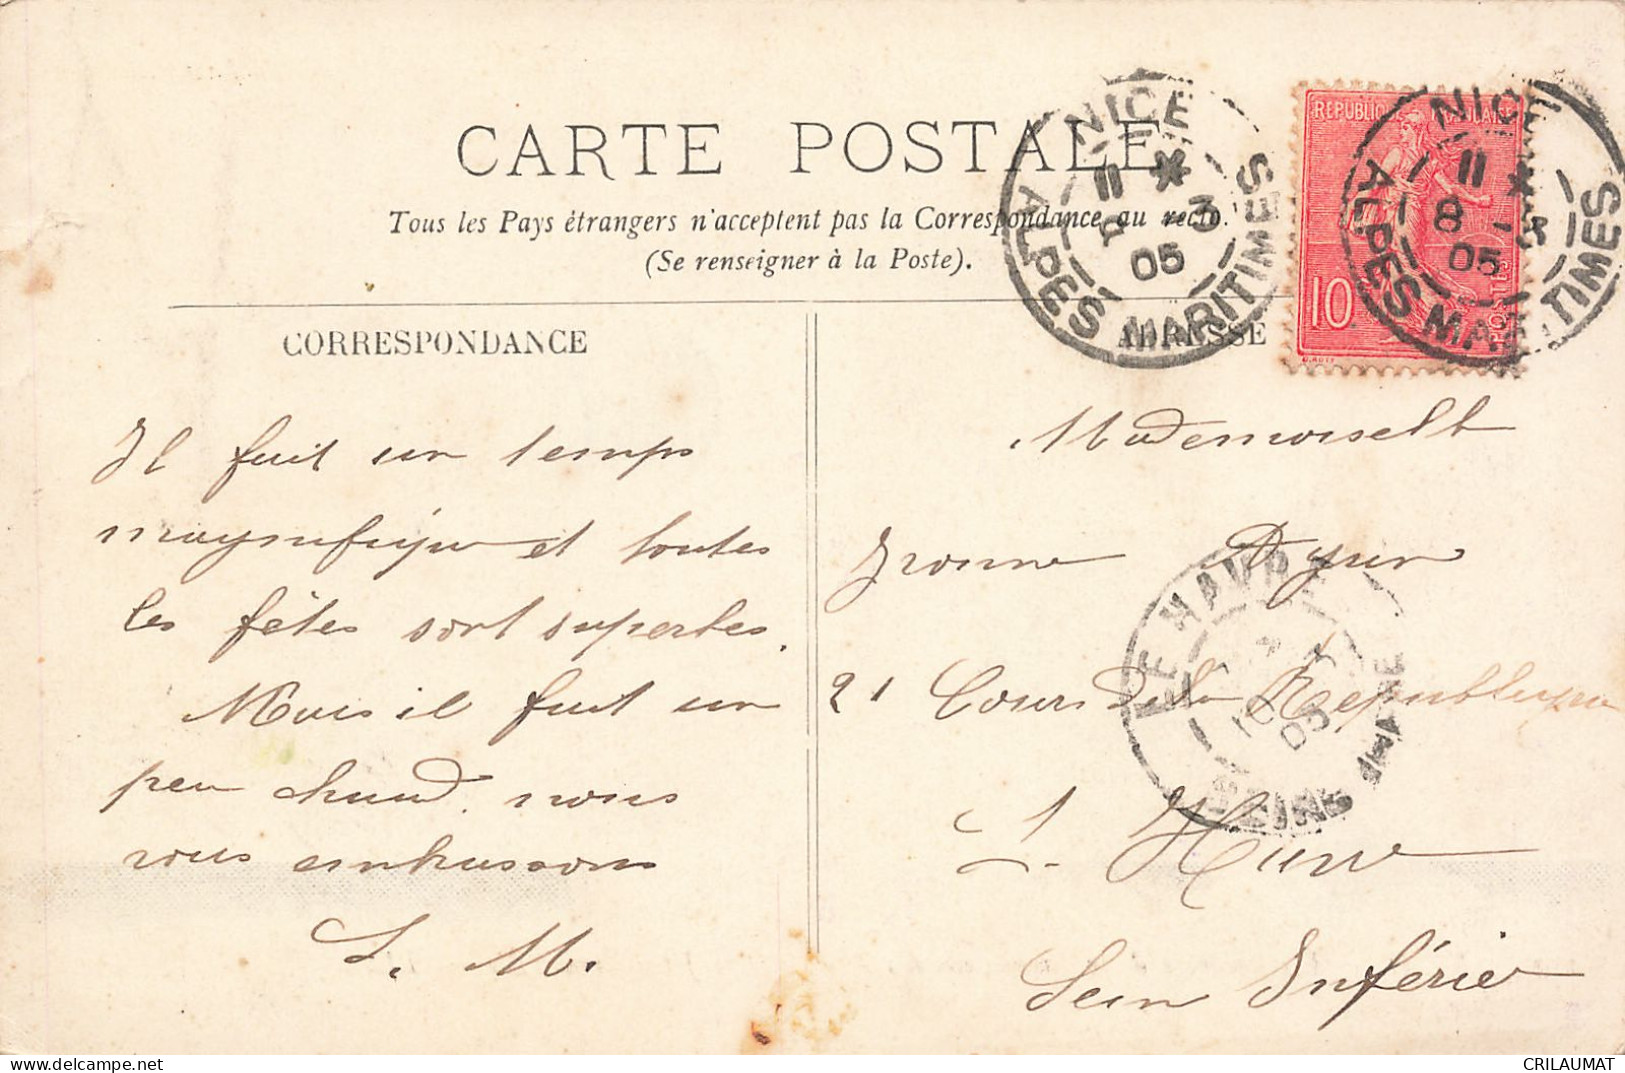 CARTE POSTALE
Tous les Pays étrangers n'acceptent pas la Correspondance au recto.
(Se renseigner à la Poste).
CORRESPONDANCE
ADRESSE
NICE
11 * 8 -3 05
ALPES MARITIMES
REPUBLIQUE FRANÇAISE
10
POSTES
NICE
11 * 8 -3 05
ALPES MARITIMES
Il fait un temps
magnifique et toutes
les fêtes sont superbes.
Mais il fait un
peu chaud. nous
vous embrassons
L. M.
Mademoiselle
Yvonne
21 Cours de la République
Le Havre
Seine Inférieure
LE HAVRE
10 05
SEINE INFRE
delcampe.net
CRILAUMAT